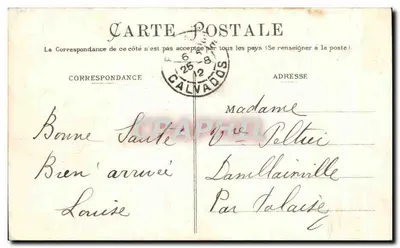 CARTE POSTALE
La Correspondance de ce côté n'est pas acceptée par tous les pays (Se renseigner à la poste)
CORRESPONDANCE
ADRESSE
25 -8
12
CALVADOS
Bonne Santé
Bien arrivée
Louise
Madame
Vve
Par Falaise